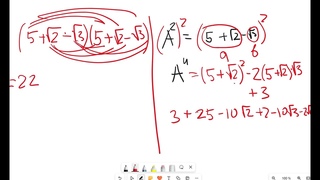 (5+√2-√3)(5+√2-√3)
=22
(A²)² = (5+√2-√3)²
a b
A⁴ = (5+√2)² -2(5+√2)√3
+3
3+25-10√2+2-10√3-2√